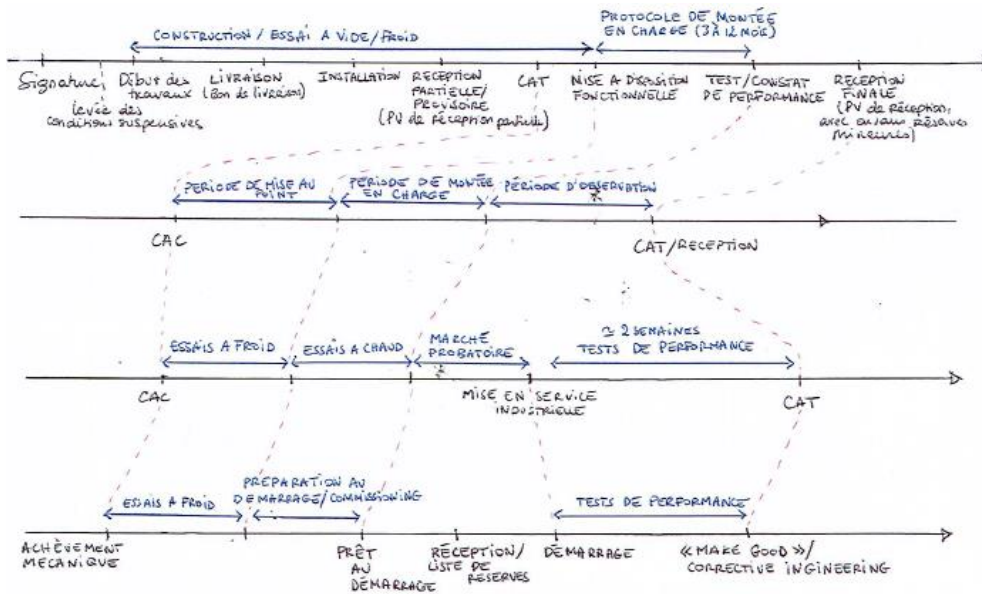 CONSTRUCTION / ESSAI A VIDE/FROID
PROTOCOLE DE MONTÉE
EN CHARGE (3 À 12 MOIS)
Signature,
levée des
conditions suspensives
Début des
travaux
LIVRAISON
(Bon de livraison)
INSTALLATION
RECEPTION
PARTIELLE/
PROVISOIRE
(PV de réception partielle)
CAT
MISE A DISPOSITION
FONCTIONNELLE
TEST/CONSTAT
DE PERFORMANCE
RECEPTION
FINALE
(PV de réception,
avec ou sans réserves
mineures)
PÉRIODE DE MISE AU
POINT
PÉRIODE DE MONTÉE
EN CHARGE
PÉRIODE D'OBSERVATION
*
CAC
CAT/RECEPTION
ESSAIS A FROID
ESSAIS A CHAUD
MARCHÉ
PROBATOIRE
*
≃ 2 SEMAINES
TESTS DE PERFORMANCE
CAC
MISE EN SERVICE
INDUSTRIELLE
CAT
ESSAIS A FROID
PRÉPARATION AU
DEMARRAGE/COMMISSIONING
TESTS DE PERFORMANCE
ACHÈVEMENT
MECANIQUE
PRÊT
AU
DÉMARRAGE
RÉCEPTION/
LISTE DE
RESERVES
DÉMARRAGE
«MAKE GOOD»/
CORRECTIVE INGINEERING